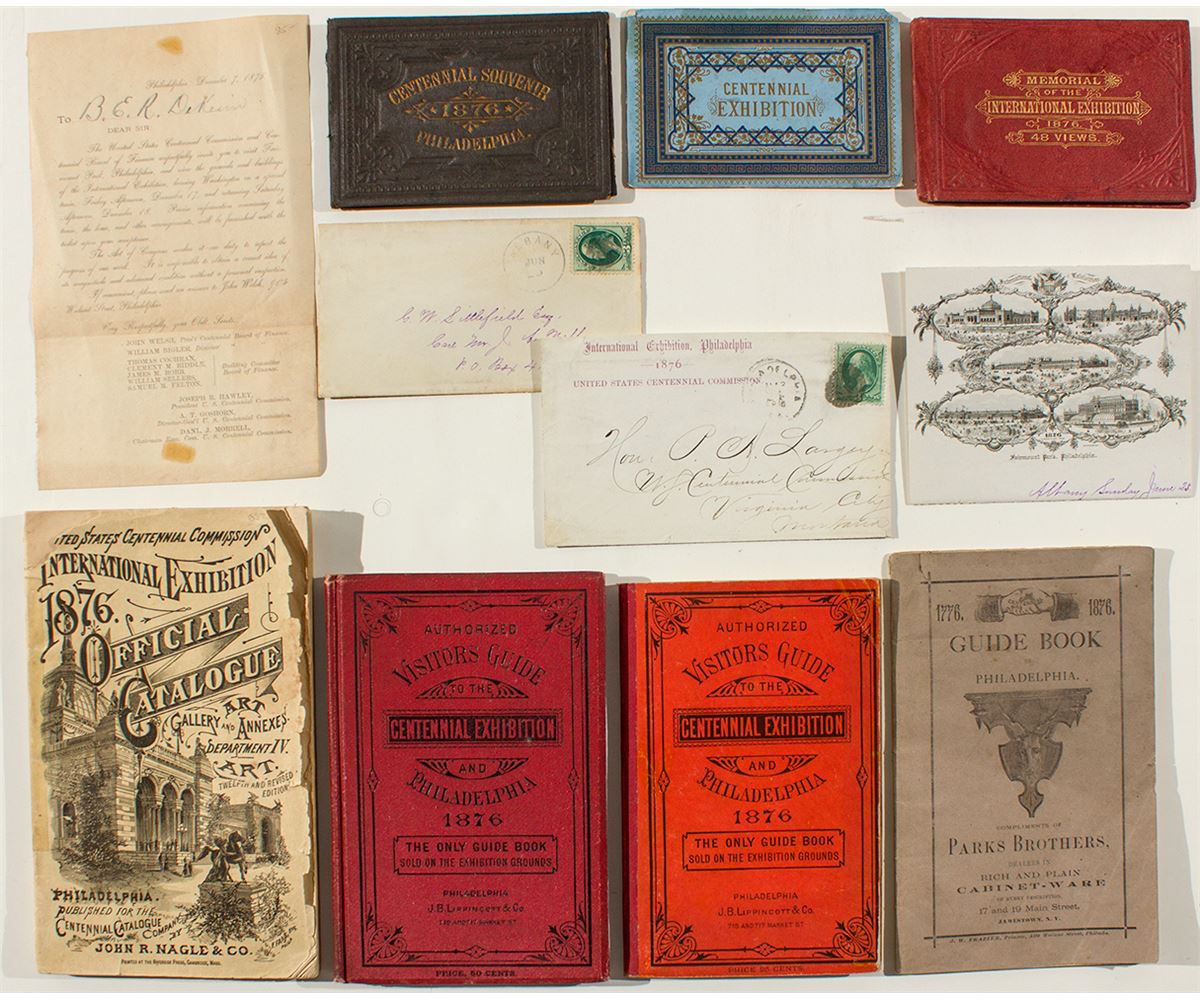 Philadelphia, December 7, 1875
To B. E. R.
DEAR SIR
The United States Centennial Commission and Cen-
tennial Board of Finance respectfully invite you to visit Fair-
mount Park, Philadelphia, and view the grounds and buildings
of the International Exhibition, leaving Washington in a special
train, Friday Afternoon, December 17, and returning Saturday
Afternoon, December 18. Precise information concerning the
train, the hour, and other arrangements, will be furnished with the
ticket upon your acceptance.
The Act of Congress makes it our duty to report the
progress of our work. It is impossible to obtain a correct idea of
its magnitude and advanced condition without a personal inspection.
If convenient, please send an answer to John Welsh,
Walnut Street, Philadelphia.
Very Respectfully, your Obdt. Servts.
JOHN WELSH, Pres't Centennial Board of Finance.
WILLIAM BIGLER,
THOMAS COCHRAN,
CLEMENT M. BIDDLE,
JAMES M. ROBB,
WILLIAM SELLERS,
SAMUEL M. FELTON,
Building Committee
Board of Finance.
JOSEPH R. HAWLEY,
President U. S. Centennial Commission.
A. T. GOSHORN,
Director-Gen'l U. S. Centennial Commission.
DANL. J. MORRELL,
Chairman Exec. Com. U. S. Centennial Commission.
CENTENNIAL SOUVENIR
1876
PHILADELPHIA.
CENTENNIAL
EXHIBITION
MEMORIAL
OF THE
INTERNATIONAL EXHIBITION
1876
48 VIEWS.
ALBANY
JUN
C. W. Littlefield Esq.
Care Mr J.
P. O. Box
International Exhibition, Philadelphia
1876
UNITED STATES CENTENNIAL COMMISSION.
Hon. P. A. Largey
U.S. Centennial Commission
Virginia City
Montana
1876
Fairmount Park, Philadelphia.
Albany Sunday June 25
UNITED STATES CENTENNIAL COMMISSION
INTERNATIONAL EXHIBITION
1876.
OFFICIAL
CATALOGUE
ART
GALLERY AND ANNEXES.
DEPARTMENT IV.
ART.
TWELFTH AND REVISED
EDITION
PHILADELPHIA.
PUBLISHED FOR THE
CENTENNIAL CATALOGUE
COMPANY BY
JOHN R. NAGLE & CO.
PRINTED AT THE RIVERSIDE PRESS, CAMBRIDGE, MASS.
AUTHORIZED
VISITORS GUIDE
TO THE
CENTENNIAL EXHIBITION
AND
PHILADELPHIA
1876
THE ONLY GUIDE BOOK
SOLD ON THE EXHIBITION GROUNDS
PHILADELPHIA
J.B. LIPPINCOTT & CO.
715 AND 717 MARKET ST
PRICE, 50 CENTS.
AUTHORIZED
VISITORS GUIDE
TO THE
CENTENNIAL EXHIBITION
AND
PHILADELPHIA
1876
THE ONLY GUIDE BOOK
SOLD ON THE EXHIBITION GROUNDS
PHILADELPHIA
J.B. LIPPINCOTT & CO.
715 AND 717 MARKET ST
PRICE 25 CENTS.
1776. 1876.
GUIDE BOOK
PHILADELPHIA.
COMPLIMENTS OF
PARKS BROTHERS,
DEALERS IN
RICH AND PLAIN
CABINET-WARE
OF EVERY DESCRIPTION,
17 and 19 Main Street,
JAMESTOWN, N.Y.